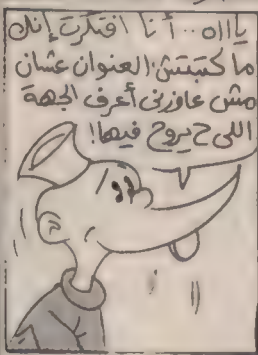 يااه.. أنا افتكرت إنك
ما كتبتش العنوان عشان
مش عاوزنى أعرف الجهة
اللى ح يروح فيها!